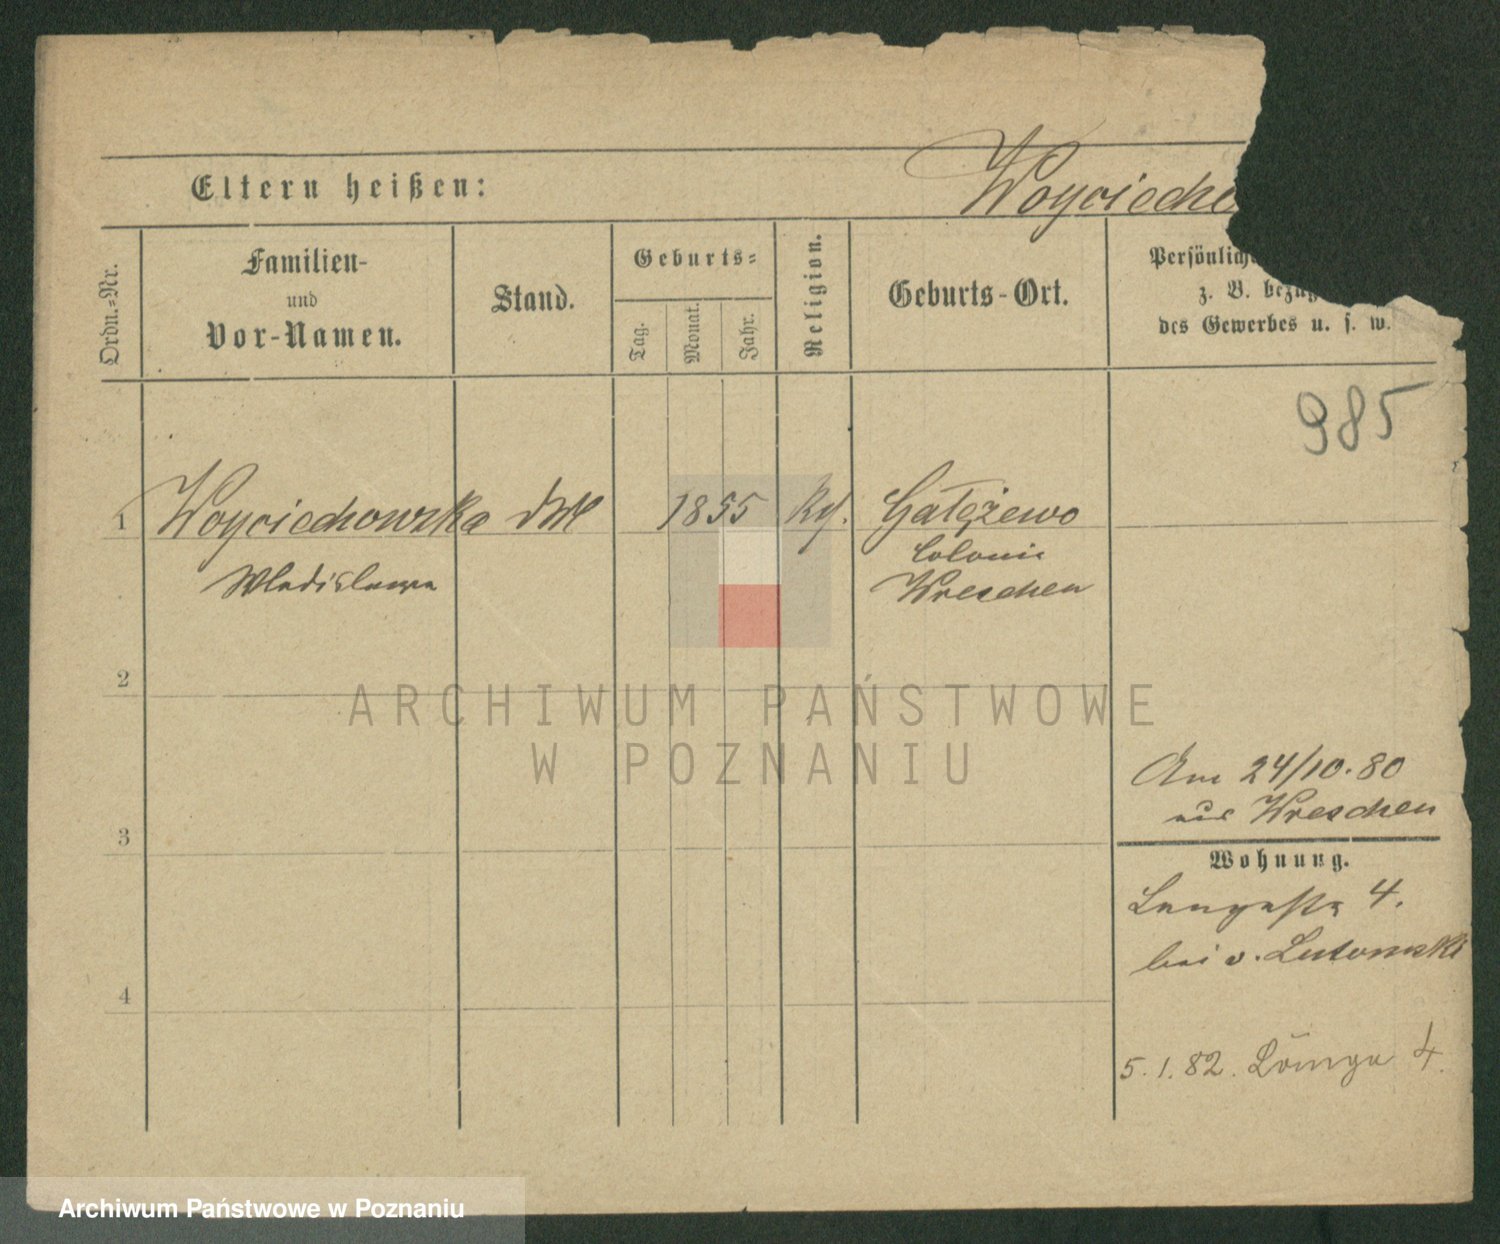 Eltern heißen:
Woyciecho
Ordn.=Nr.
Familien-
und
Vor-Namen.
Stand.
Geburts=
Tag.
Monat.
Jahr.
Religion.
Geburts-Ort.
Persönliche
z. B. bezug
des Gewerbes u. s. w.
985
1 Woyciechowska 1855 Gałężewo
Wladislawa Colonie
Wreschen
2
3
4
Am 24/10.80
aus Wreschen
Wohnung.
Langestr 4.
bei v. Lutomski
5.1.82. 4
ARCHIWUM PAŃSTWOWE
W POZNANIU
Archiwum Państwowe w Poznaniu